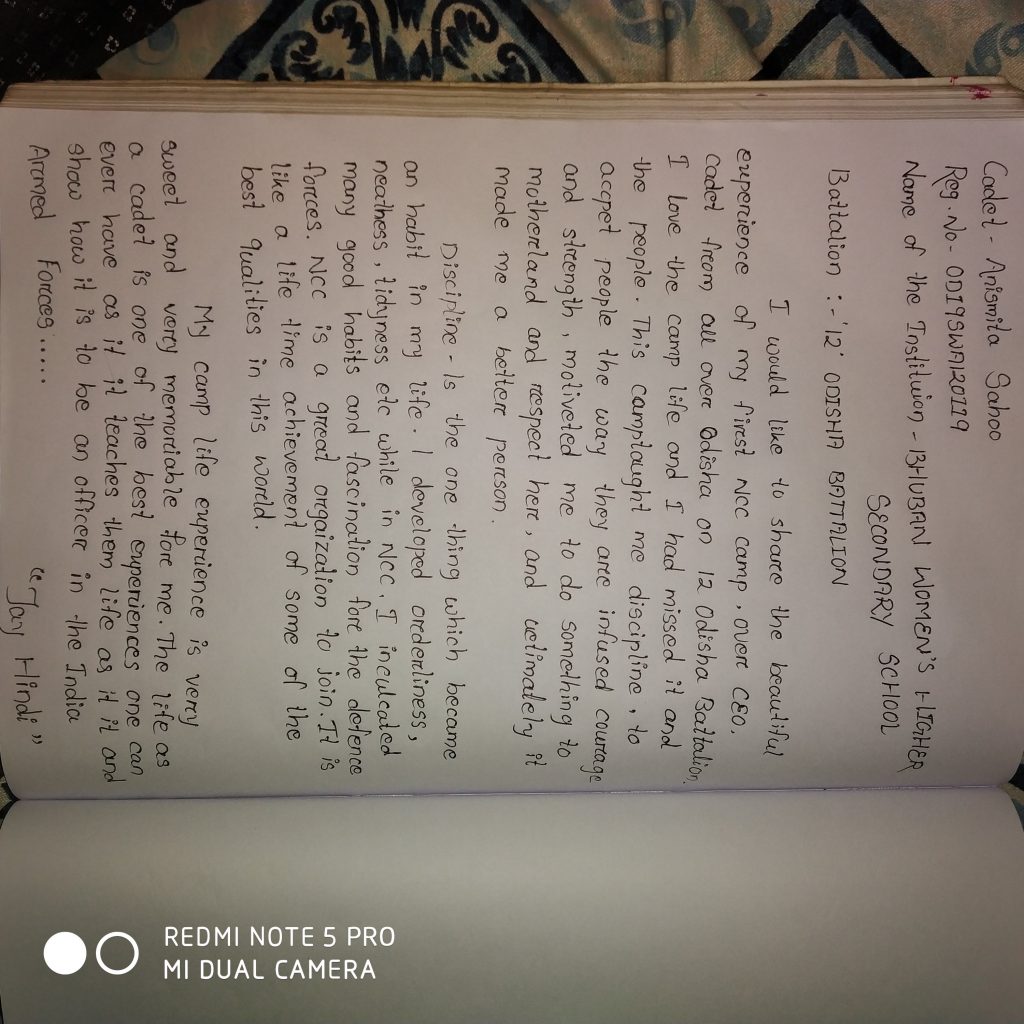 Cadet - Anismita Sahoo
Reg. No - OD19SWA120119
Name of the Instituion - BHUBAN WOMEN'S HIGHER
SECONDARY SCHOOL
Battalion :- '12' ODISHA BATTALION
I would like to share the beautiful
experience of my first NCC camp. over CEO.
cadet from all over Odisha on 12 Odisha Battalion.
I love the camp life and I had missed it and
the people. This camptaught me discipline, to
accpet people the way they are infused courage
and strength, motiveted me to do something to
motherland and respect here, and uetimately it
made me a better person.
Discipline - Is the one thing which became
an habit in my life. I developed orderliness,
neatness, tidyness etc while in NCC. I inculcated
many good habits and fascination fore the defence
forces. NCC is a great orgaization to join. It is
like a life time achievement of some of the
best qualities in this world.
My camp life experience is very
sweet and very memoriable fore me. The life as
a cadet is one of the best experiences one can
ever have as it it teaches them life as it it and
show how it is to be an officer in the India
Aromed Forces.....
"Jay Hindi"
REDMI NOTE 5 PRO
MI DUAL CAMERA